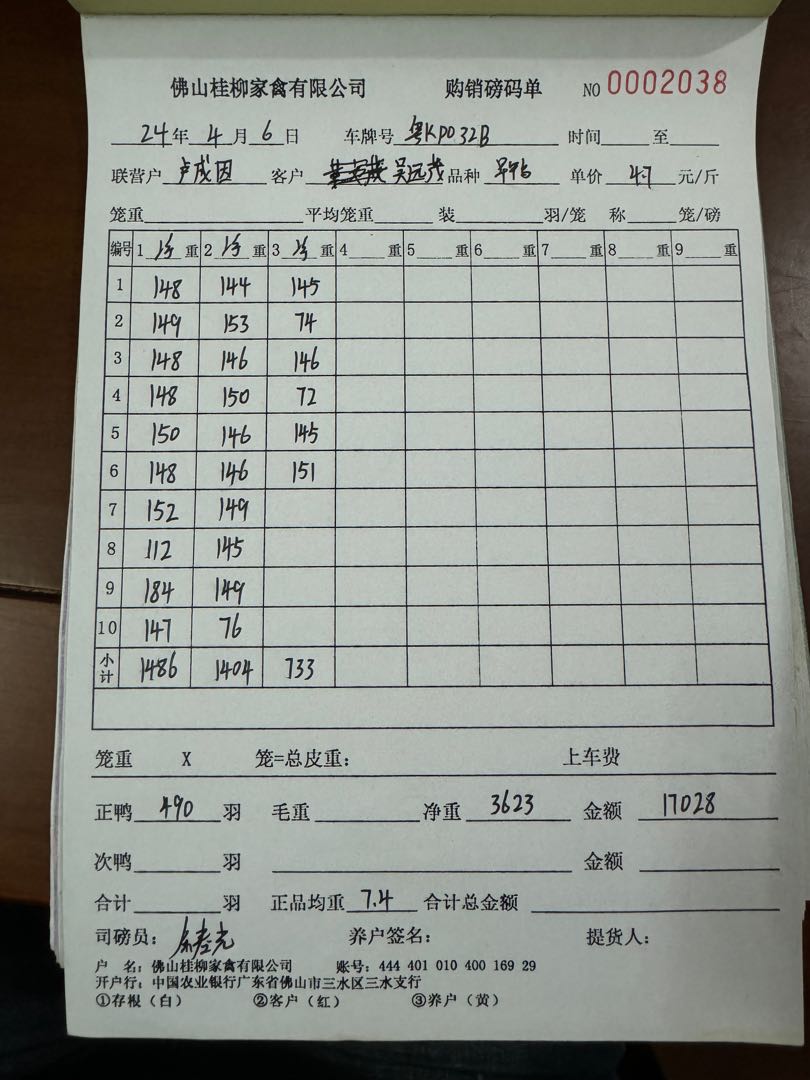 佛山桂柳家禽有限公司 购销磅码单 NO 0002038
24年4月6日 车牌号 粤KP032B 时间 至
联营户 卢成因 客户 吴远茂 品种 单价 4.7 元/斤
笼重 平均笼重 装 羽/笼 称 笼/磅
编号 1 净 重 2 净 重 3 净 重 4 重 5 重 6 重 7 重 8 重 9 重
1 148 144 145
2 149 153 74
3 148 146 146
4 148 150 72
5 150 146 145
6 148 146 151
7 152 149
8 112 145
9 184 149
10 147 76
小计 1486 1404 733
笼重 X 笼=总皮重： 上车费
正鸭 490 羽 毛重 净重 3623 金额 17028
次鸭 羽 金额
合计 羽 正品均重 7.4 合计总金额
司磅员： 养户签名： 提货人：
户 名：佛山桂柳家禽有限公司 账号：444 401 010 400 169 29
开户行：中国农业银行广东省佛山市三水区三水支行
①存根（白） ②客户（红） ③养户（黄）